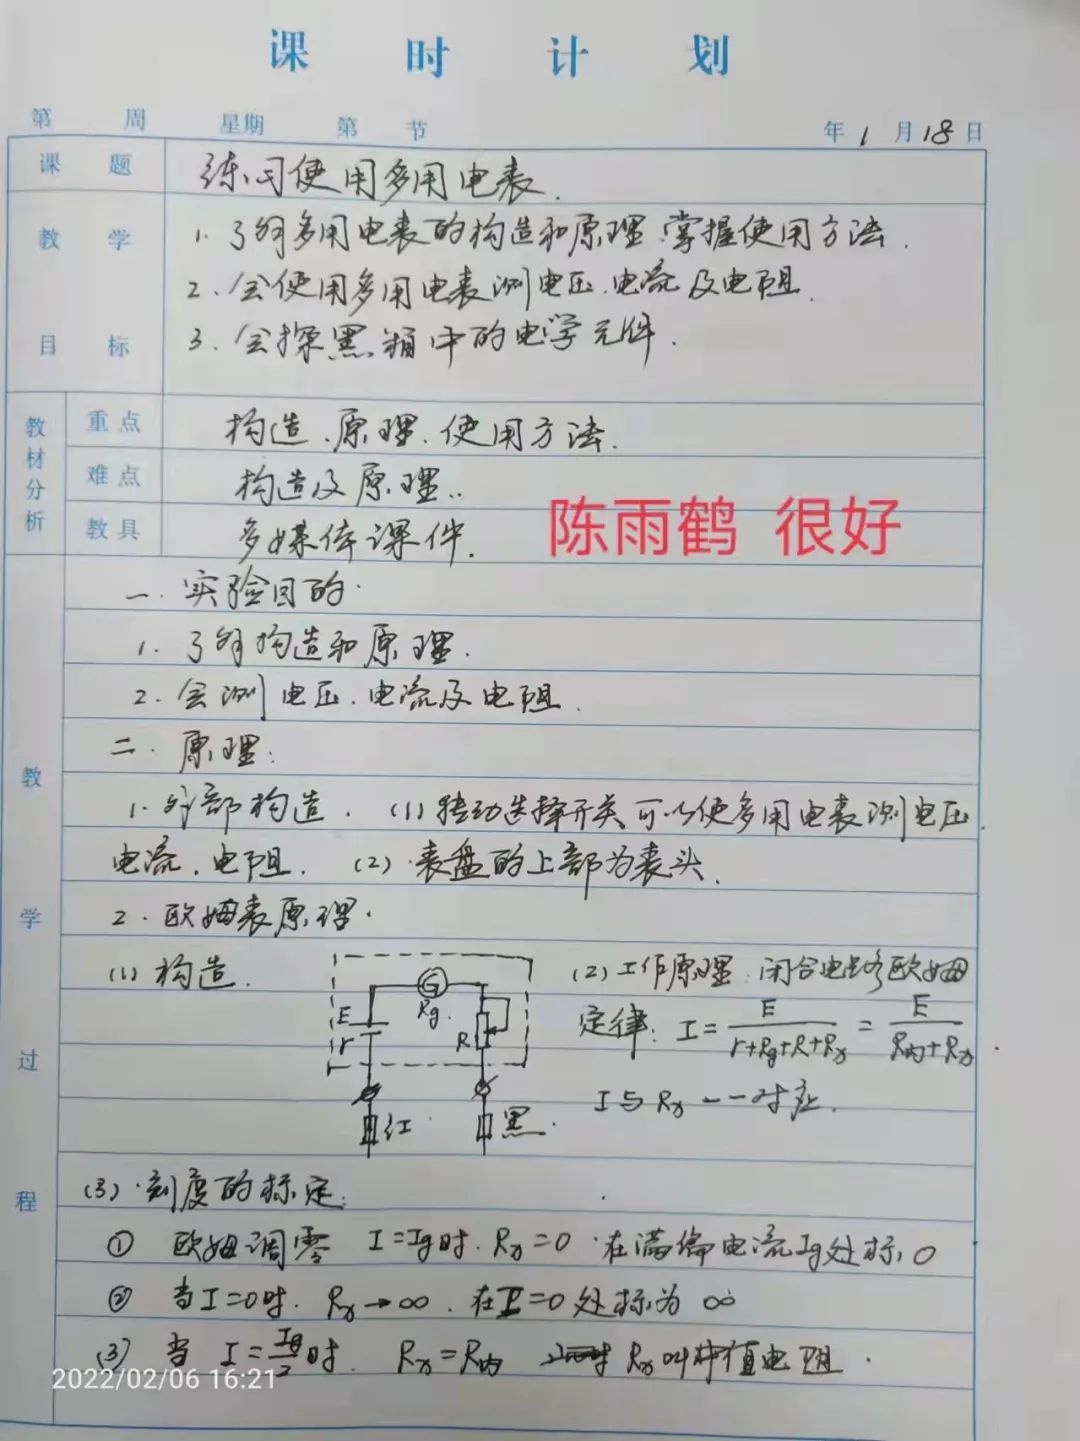 课 时 计 划
第 周 星期 第 节 年 1 月 18 日
课 题 练习使用多用电表.
教 学 目 标 1. 了解多用电表的构造和原理.掌握使用方法.
2. 会使用多用电表测电压.电流及电阻.
3. 会探黑箱中的电学元件.
教材分析 重点 构造.原理.使用方法.
难点 构造及原理..
教具 多媒体课件.
陈雨鹤 很好
教 学 过 程
一. 实验目的.
1. 了解构造和原理.
2. 会测电压.电流及电阻.
二. 原理:
1. 外部构造. (1) 转动选择开关可以使多用电表测电压.
电流.电阻. (2) 表盘的上部为表头.
2. 欧姆表原理.
(1) 构造.
G
Rg.
E
r
R
红
黑.
(2) 工作原理: 闭合电路欧姆
定律: I = E/(r+Rg+R+Rx) = E/(R内+Rx)
I与Rx 一一对应.
(3) 刻度的标定:
① 欧姆调零 I=Ig时. Rx=0 .在满偏电流Ig处标0
② 当I=0时. Rx→∞ . 在I=0处标为 ∞
(3) 当 I=Ig/2时. Rx=R内 Rx叫中值电阻.
2022/02/06 16:21